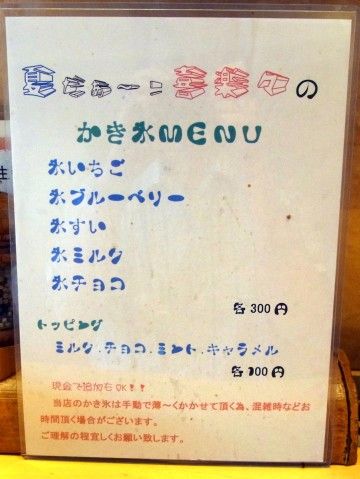 夏だぁ～！お勧めの
かき氷MENU
氷いちご
氷ブルーベリー
氷すい
氷ミルク
氷チョコ
各300円
トッピング
ミルク.チョコ.ミント.キャラメル
各100円
現金で追加もOK！！
当店のかき氷は手動で薄～くかかせて頂く為、混雑時などお
時間頂く場合がございます。
ご理解の程宜しくお願い致します。